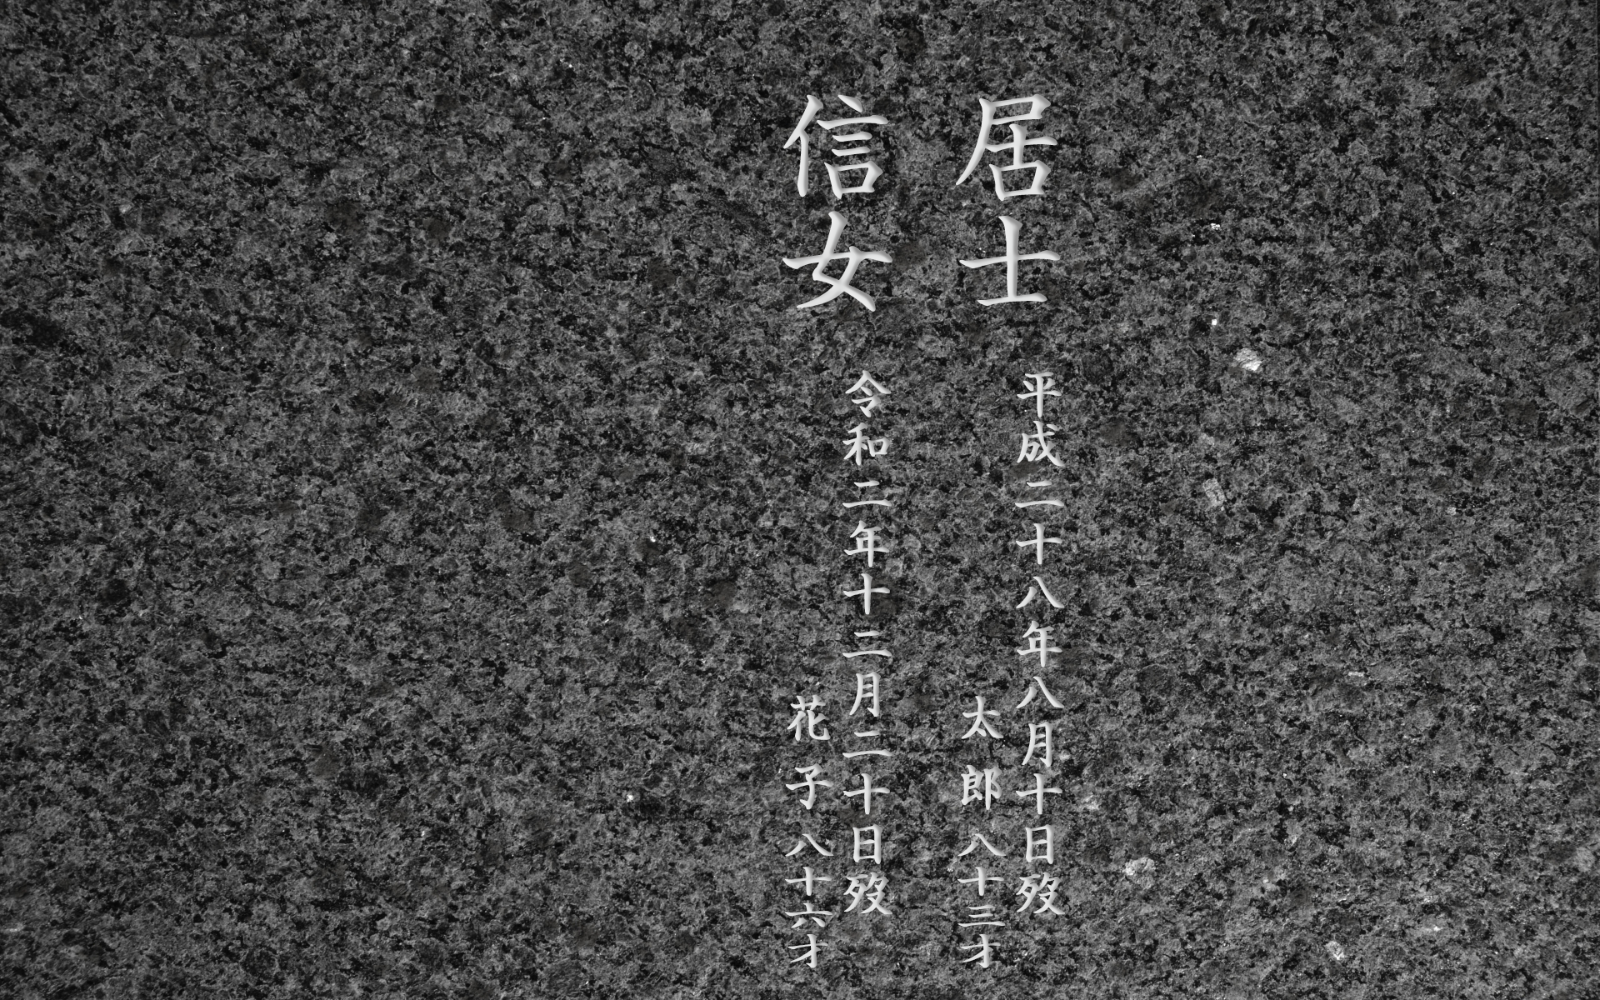 居士
平成二十八年八月十日歿
太郎 八十三才
信女
令和二年十二月二十日歿
花子 八十六才